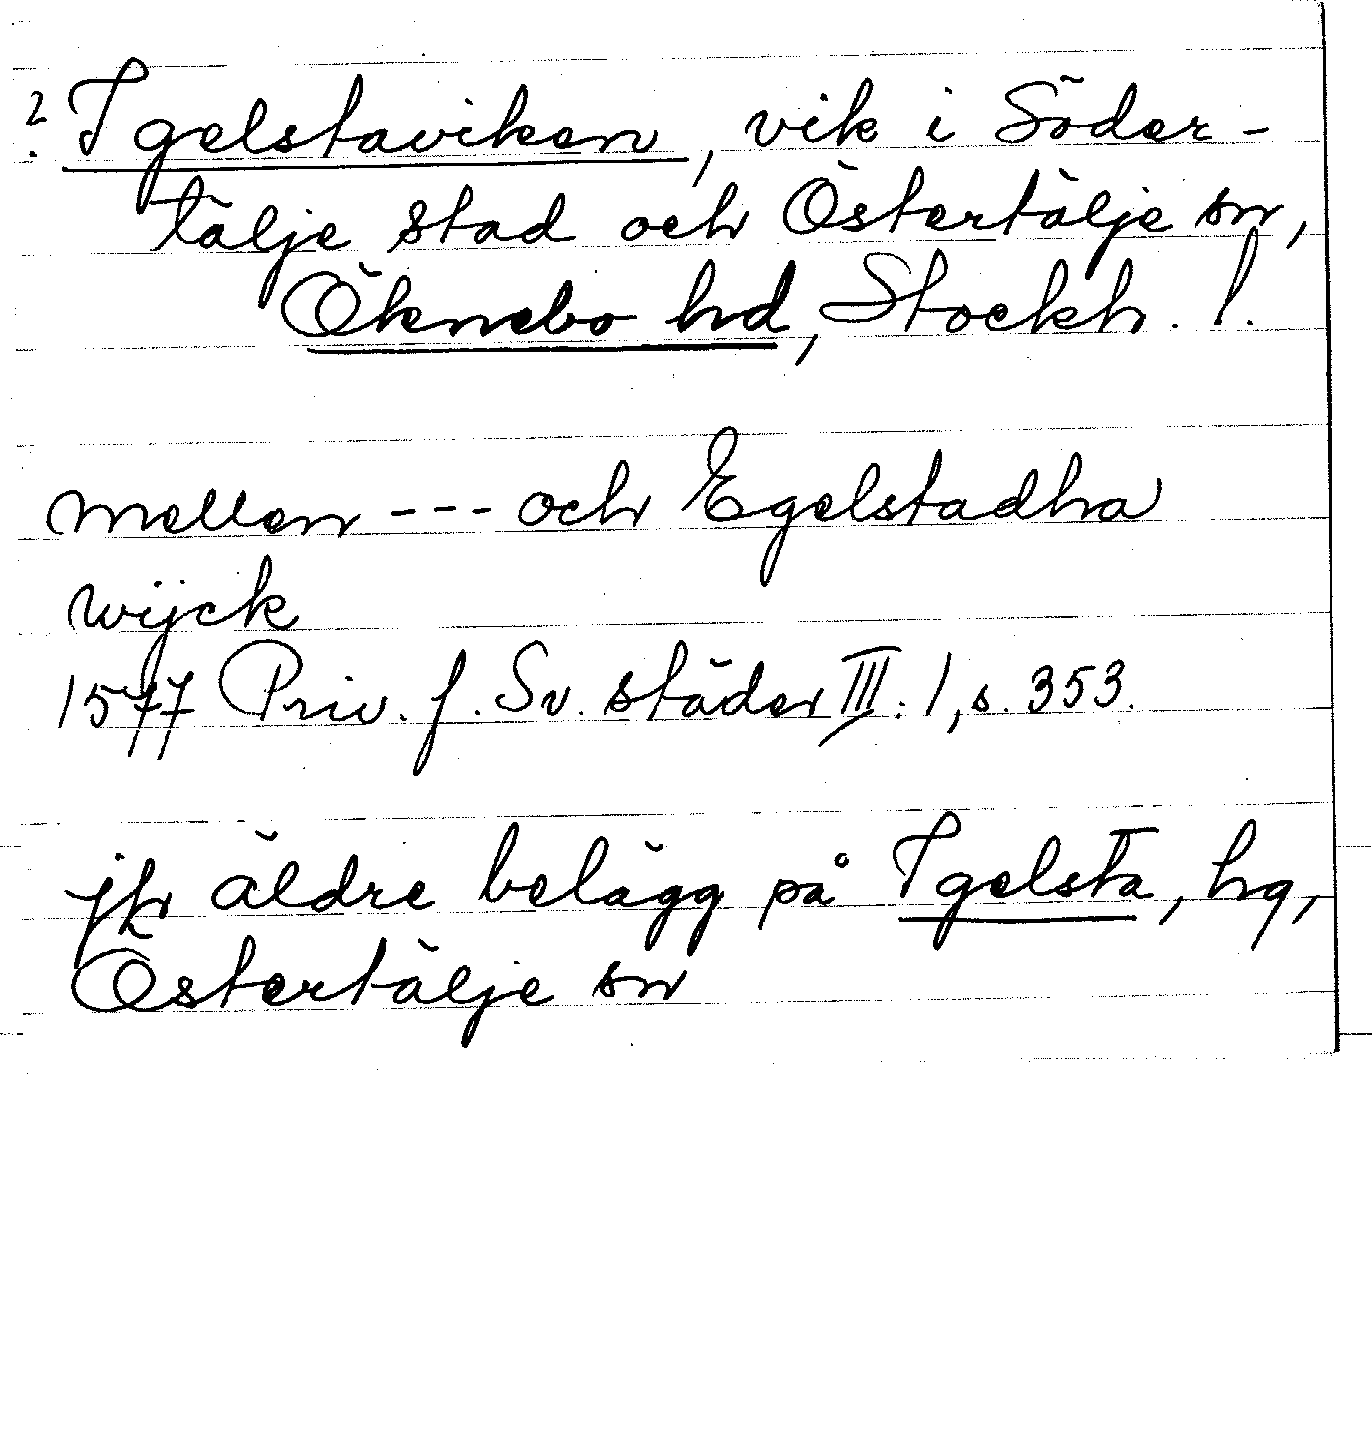 ? Igelstaviken, vik i Söder-
tälje stad och Östertälje sn,
Öknebo hd, Stockh. l.
mellen --- och Egelstadha
wijck
1577 Priv. f. Sv. städer III: 1, s. 353.
jfr äldre belägg på Igelsta, hg,
Östertälje sn